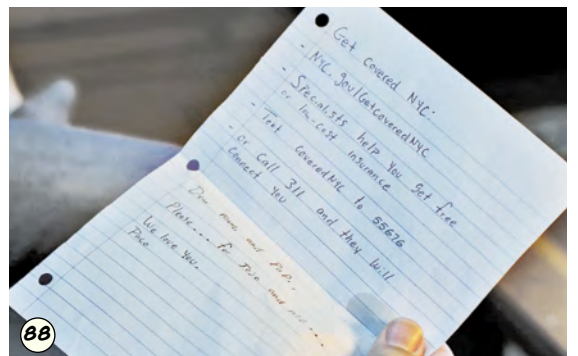 Get Covered NYC:
- NYC.gov/GetCoveredNYC
- Specialists help you get free
or low-cost insurance
- Text CoveredNYC to 55676
- or Call 311 and they will
connect you
Dear mom and PoP...
Please.... for Jose and me....
We love you.
Paco
88